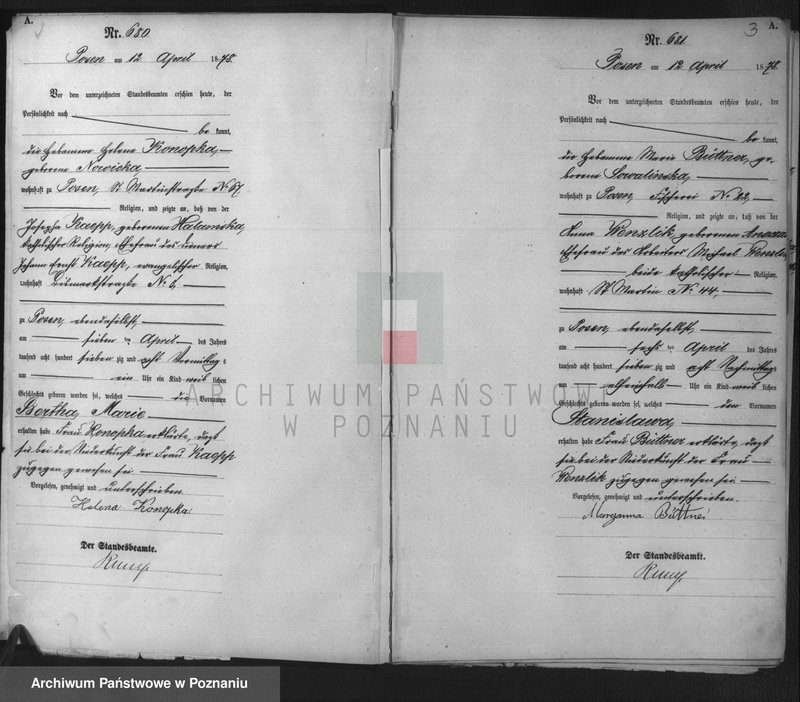 A.
Nr. 680.
Posen am 12 April 1878.
Vor dem unterzeichneten Standesbeamten erschien heute, der
Persönlichkeit nach
be kannt,
die Hebamme Helena Konopka,
geborene Nowicka
wohnhaft zu Posen, St Martinstraße No 67
Religion, und zeigte an, daß von der
Josepha Kaepp, geborenen
katholischer Religion, Ehefrau des
Johann Ernst Kaepp, evangelischer Religion,
wohnhaft Bismarkstraße No 6,
zu Posen, ebendaselbst,
am sieben ten April des Jahres
tausend acht hundert sieben zig und acht Vormittag s
um ein Uhr ein Kind weib lichen
Geschlechts geboren worden sei, welches die Vornamen
Bertha, Marie
erhalten habe. Frau Konopka erklärte, daß
sie bei der Niederkunft der Frau Kaepp
zugegen gewesen sei.
Vorgelesen, genehmigt und unterschrieben
Helena Konopka
Der Standesbeamte.
3
A.
Nr. 681.
Posen am 12 April 1878.
Vor dem unterzeichneten Standesbeamten erschien heute, der
Persönlichkeit nach
be kannt,
die Hebamme Marie Büttner, ge-
borene
wohnhaft zu Posen, Fischerei No 22,
Religion, und zeigte an, daß von der
Anna Wenzlik, geborenen
Ehefrau des Arbeiters Michael Wenzlik
beide katholischer Religion,
wohnhaft St Martin No 44,
zu Posen, ebendaselbst,
am sechs ten April des Jahres
tausend acht hundert sieben zig und acht Nachmittags
um elfeinhalb Uhr ein Kind weib lichen
Geschlechts geboren worden sei, welches den Vornamen
Stanislawa,
erhalten habe. Frau Büttner erklärte, daß
sie bei der Niederkunft der Frau
Wenzlik zugegen gewesen sei.
Vorgelesen, genehmigt und unterschrieben.
Maryanna Büttner
Der Standesbeamte.
ARCHIWUM PAŃSTWOWE
W POZNANIU
Archiwum Państwowe w Poznaniu